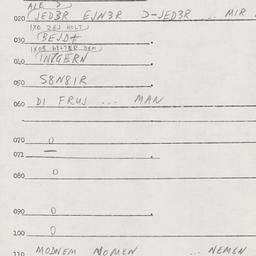 ALE
020 (JED3R EJN3R >-JED3R ... MIR
IXO ZEJ HOLT
030 (BEJD+
IX08 HELTER DEM
040 INGERN
050 S8N8IR
060 DI FRUJ ... MAN
070 0
071 —
080 0
090 0
100 0
110 MODNEM NOMEN ... NEMEN